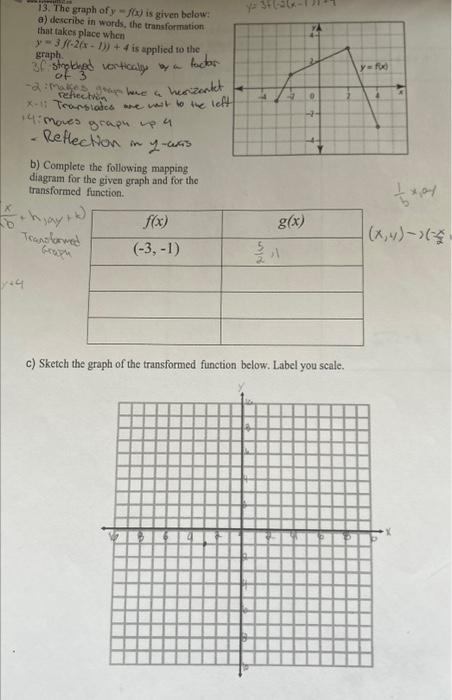 13. The graph of y = f(x) is given below:
a) describe in words, the transformation
that takes place when
y = 3 f(-2(x - 1)) + 4 is applied to the
graph.
3f: stretched vertically by a factor
of 3
-2: makes have a horizontal
reflection
x-1: Translates one unit to the left
+4: moves graph up 4
- Reflection in y-axis
y = f(x)
-4 -2 0 2 4
2
-2
-4
b) Complete the following mapping
diagram for the given graph and for the
transformed function.
x/b + h, ay + k)
Transformed
Graph
y+4
1/b x, ay
(x,y)->(-x/2
f(x) g(x)
(-3, -1) 5/2, 1
c) Sketch the graph of the transformed function below. Label you scale.
y
x